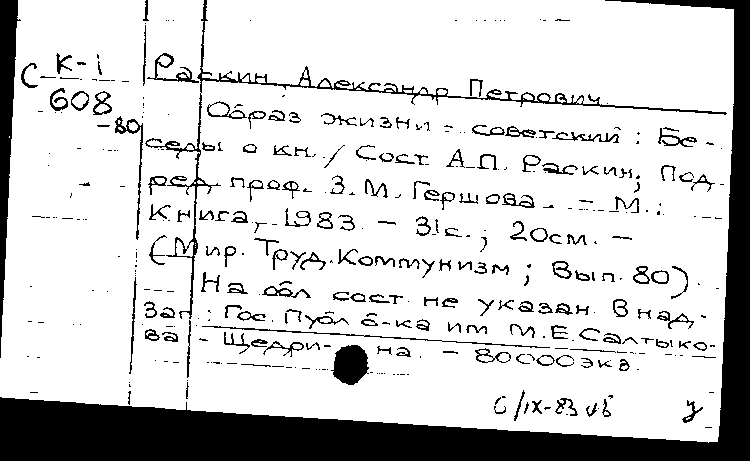 С К-1
608
-80
Раскин, Александр Петрович
Образ жизни - советский : Бе-
седы о кн. / Сост. А.П. Раскин; Под
ред. проф. З.М. Гершова. - М. :
Книга, 1983. - 31с. ; 20см. -
(Мир. Труд. Коммунизм ; Вып. 80).
На обл сост. не указан. В над-
заг : Гос. Публ б-ка им М.Е.Салтыко-
ва - Щедри- на. - 80000экз.